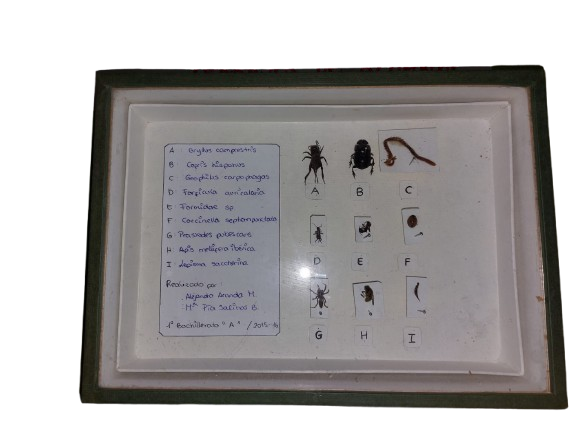 A : Gryllus campestris
B Copris hispanus
C Geophilus carpophagus
D Forficula auricularia
E Formidae sp
F Coccinella septempunctata
G pubescens
H Apis mellifera iberica
I Lepisma saccharina
Realizado por:
Alejandro Aranda M.
Mª Pía Salinas G.
1º Bachillerato "A" / 2015-16
A B C
D E F
G H I